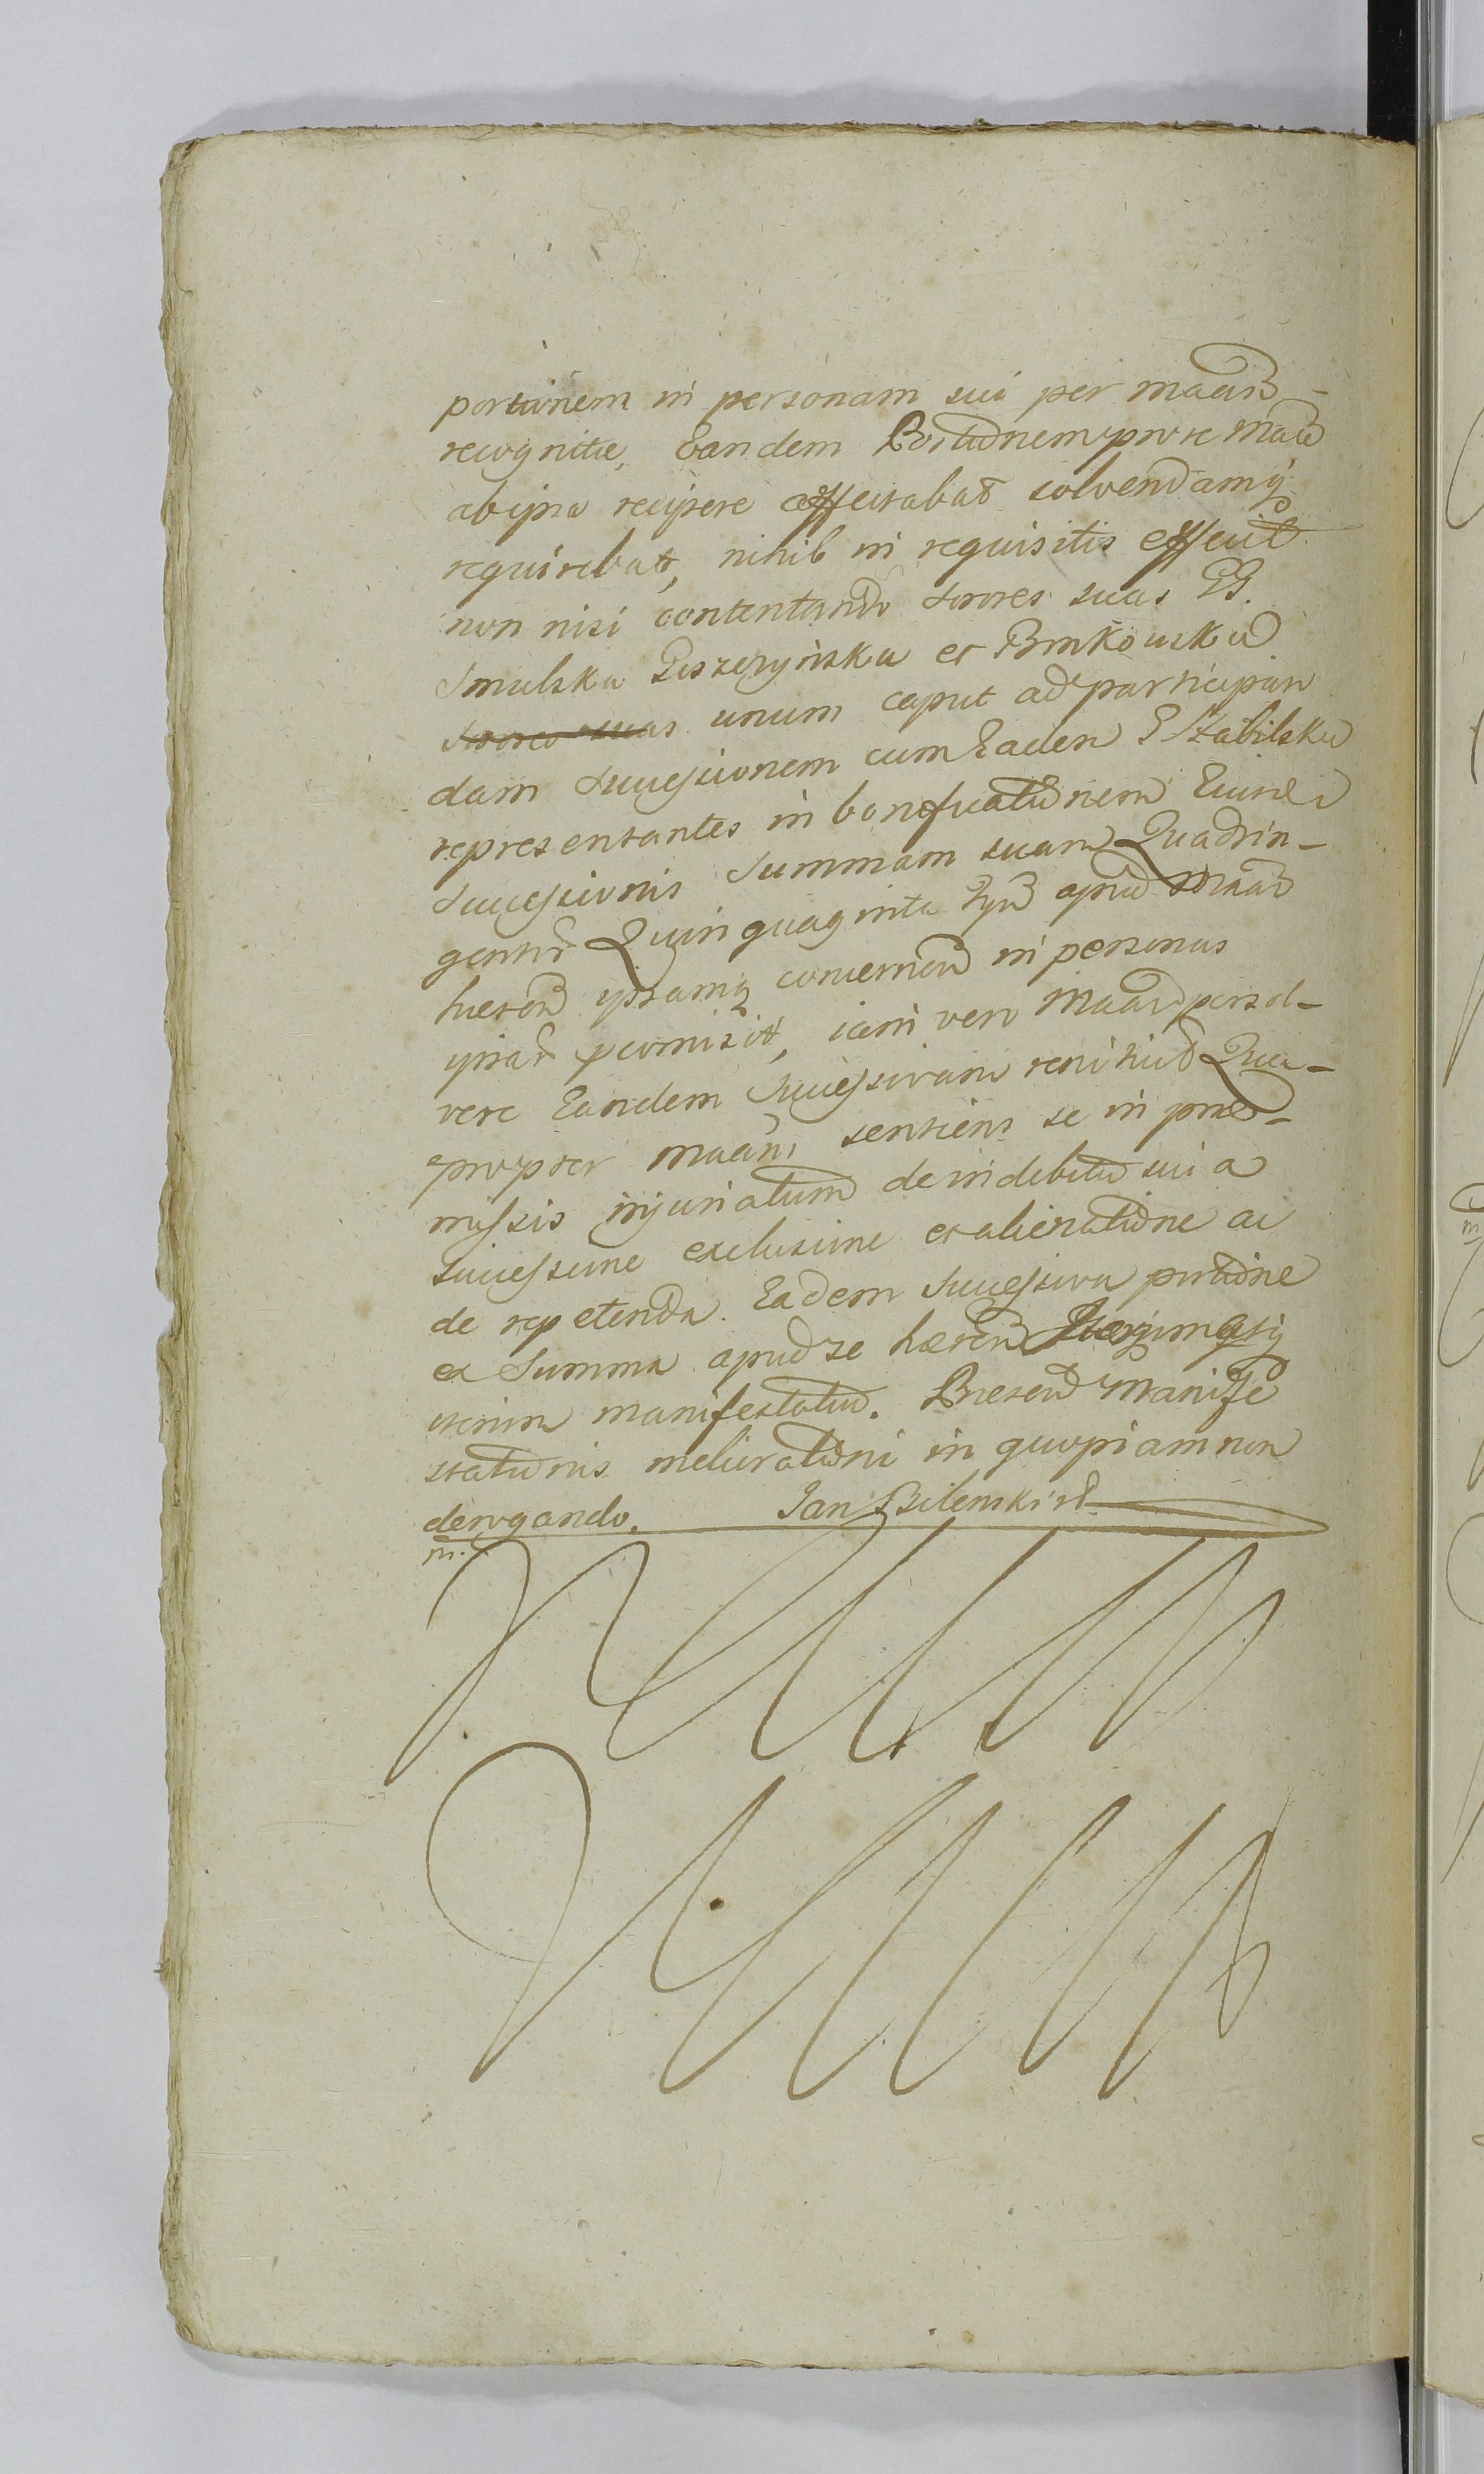 portionem in personam sui per maan̄
recognitæ, Eandem Portionem pro se Maan̄
ab ipso recipere affectabat solvendamq;
requirebat, nihil in requisitis effecit
non nisi contentando sorores suas GG.
Smulska et Bonkowska
sorores suas unum caput ad participan
dam Successionem cum Eadem G Szabilska
representantes in bonificationem Eiusd
Successionis Summam suam Quadrin-
gentor Quinquaginta apud Maan̄
hæren ipsamq; concernen in personas
ipsar promisit, iam vero Maan̄ persol-
vere Eandem Successivam renituit Qua-
propter maans sentiens se in præ-
missis injuriatum de indebita sui a
successione exclusione et alienatione ac
de repetenda Eadem Successiva portione
ex Summa apud se hæren
iterum manifestatur. Presen Manife
stationis melioratione in quopiam non
derogando. Jan Bilenski
m.